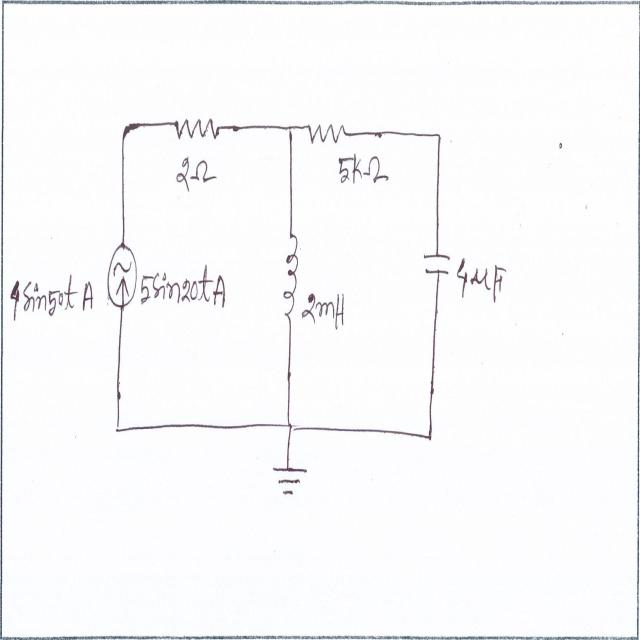 2Ω
5kΩ
4sin50t A
5sin20t A
2mH
4μF